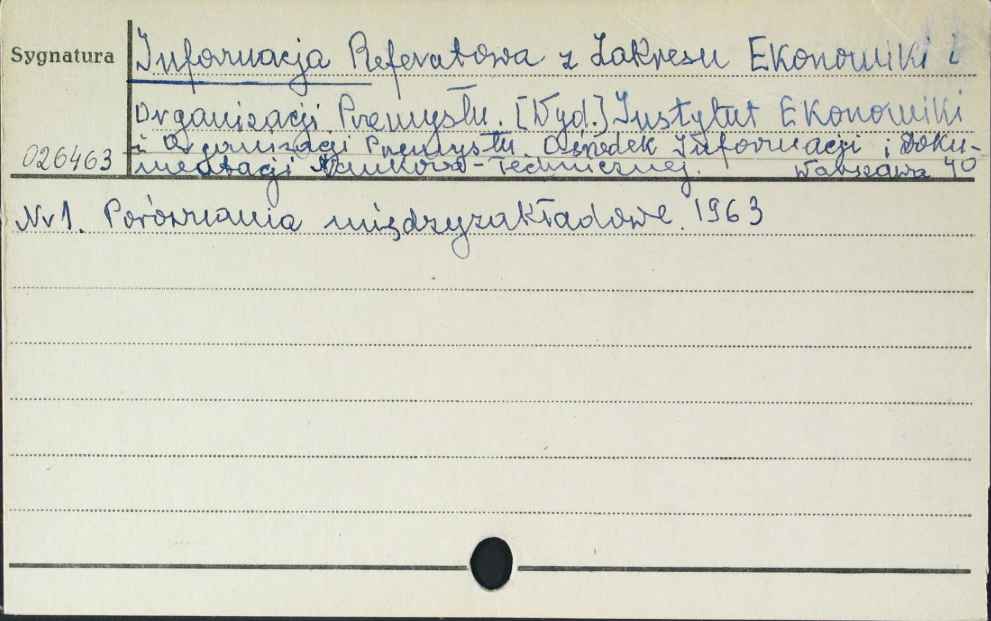 Sygnatura
Informacja Referatowa z Zakresu Ekonomiki i
Organizacji Przemysłu. [Wyd.] Instytut Ekonomiki
i Organizacji Przemysłu. Ośrodek Informacji i Doku-
026463 mentacji Naukowo-Technicznej. Warszawa 40
Nr 1. Porównania międzyzakładowe. 1963